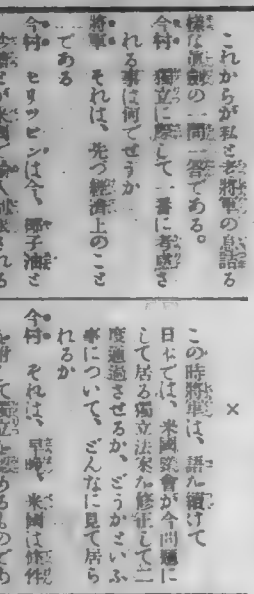 これからが私と老將軍の息詰る
様な眞劍の一問一答である。
今村 獨立に際して一番に考慮さ
れる事は何でせうか
將軍 それは、先づ經濟上のこと
である
今村 ヒリッピンは今、椰子油と
×
この時將軍は、語を續けて
日本では、米國議會が今問題に
して居る獨立法案を修正して
度通過させるか、どうかといふ
事について、どんなに見て居ら
れるか
今村 それは、早晩、米國は條件
を附して獨立を